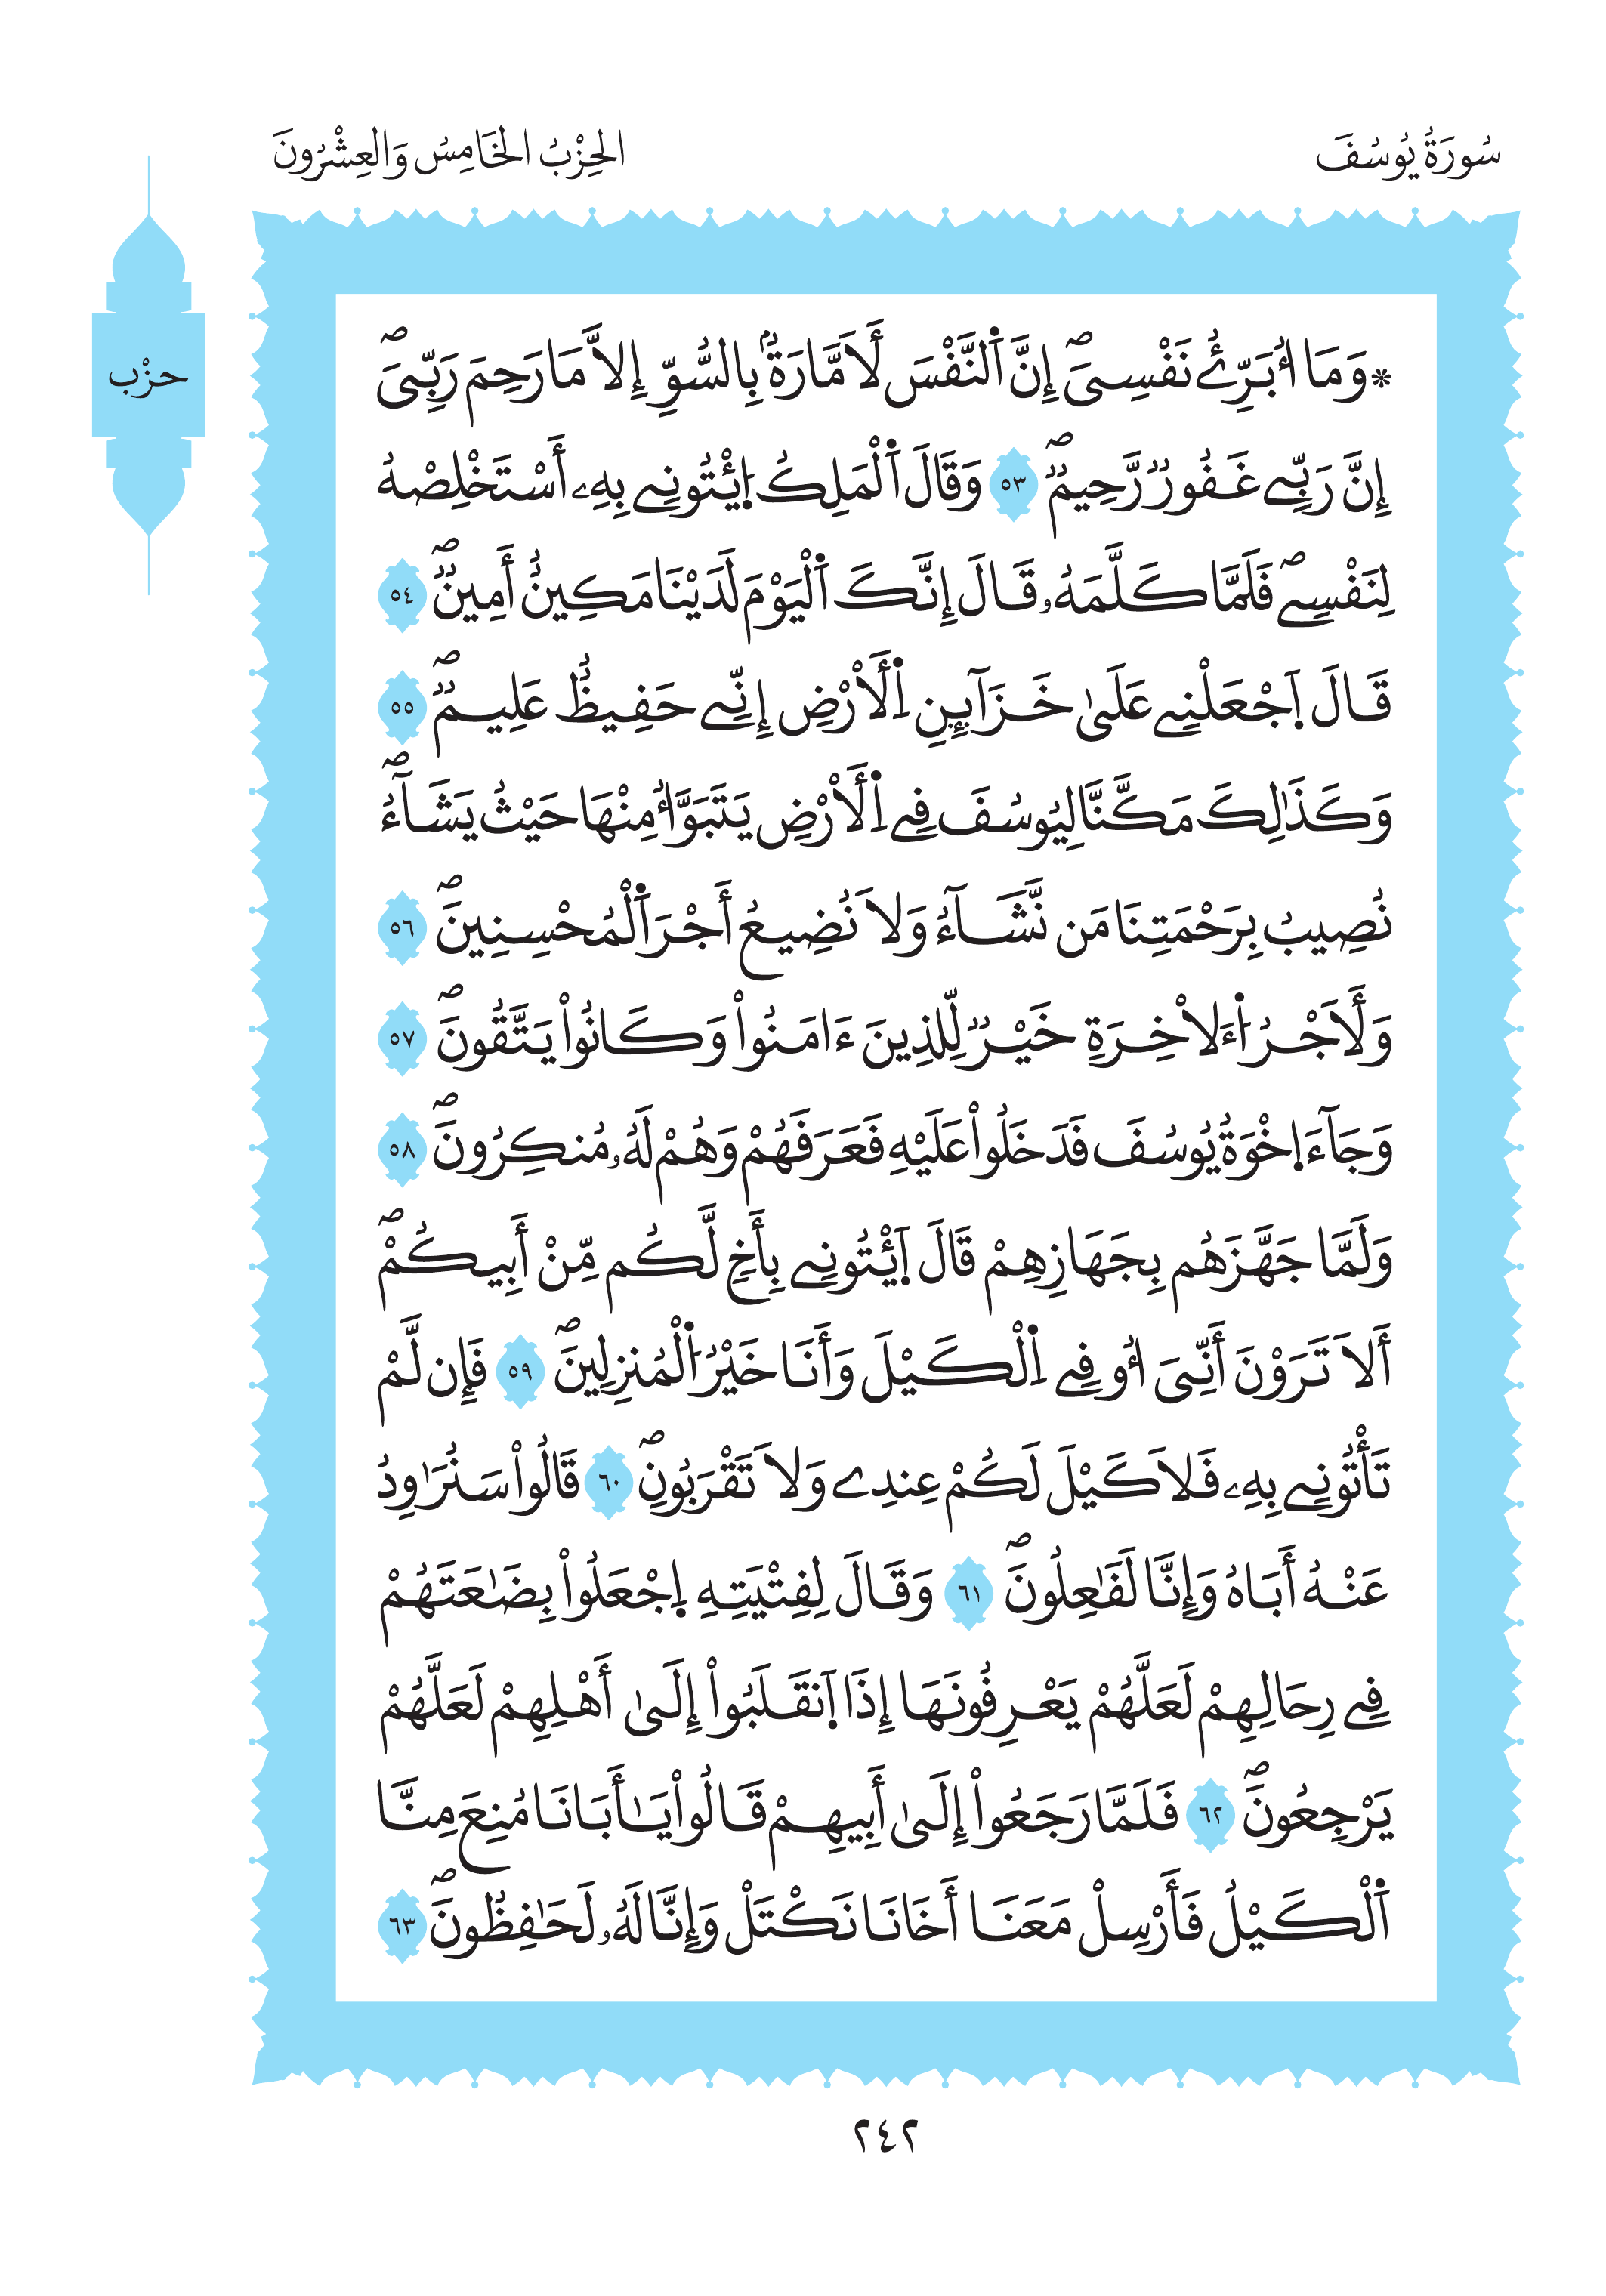 سُورَةُ يُوسُفَ
الحِزْبُ الخَامِسُ وَالعِشْرُونَ
حزْب
* وَمَا أُبَرِّئُ نَفْسِىَۖ إِنَّ اَ۬لنَّفْسَ لَأَمَّارَةُۢ بِالسُّوِّ إِلَّا مَا رَحِمَ رَبِّىَۖ
إِنَّ رَبِّے غَفُورٞ رَّحِيمٞۖ ٥٣ وَقَالَ اَ۬لْمَلِكُ اُ۪ئْتُونِے بِهِۦ أَسْتَخْلِصْهُ
لِنَفْسِےۖ فَلَمَّا كَلَّمَهُۥ قَالَ إِنَّكَ اَ۬لْيَوْمَ لَدَيْنَا مَكِينٌ أَمِينٞۖ ٥٤
قَالَ اَ۪جْعَلْنِے عَلَىٰ خَزَآئِنِ اِ۬لْأَرْضِ إِنِّے حَفِيظٌ عَلِيمٞۖ ٥٥
وَكَذَٰلِكَ مَكَّنَّا لِيُوسُفَ فِے اِ۬لْأَرْضِ يَتَبَوَّأُ مِنْهَا حَيْثُ يَشَآءُۖ
نُصِيبُ بِرَحْمَتِنَا مَن نَّشَآءُ وَلَا نُضِيعُ أَجْرَ اَ۬لْمُحْسِنِينَۖ ٥٦
وَلَأَجْرُ اُ۬ءَلَاخِرَةِ خَيْرٞ لِّلذِينَ ءَامَنُواْ وَكَانُواْ يَتَّقُونَۖ ٥٧
وَجَآءَ اِ۪خْوَةُ يُوسُفَ فَدَخَلُواْ عَلَيْهِ فَعَرَفَهُمْ وَهُمْ لَهُۥ مُنكِرُونَۖ ٥٨
وَلَمَّا جَهَّزَهُم بِجَهَازِهِمْ قَالَ اَ۪ئْتُونِے بِأَخٖ لَّكُم مِّنْ أَبِيكُمْۖ
أَلَا تَرَوْنَ أَنِّىَ أُوفِے اِ۬لْكَيْلَ وَأَنَا خَيْرُ اُ۬لْمُنزِلِينَۖ ٥٩ فَإِن لَّمْ
تَأْتُونِے بِهِۦ فَلَا كَيْلَ لَكُمْ عِندِے وَلَا تَقْرَبُونِۖ ٦٠ قَالُواْ سَنُرَٰوِدُ
عَنْهُ أَبَاهُ وَإِنَّا لَفَٰعِلُونَۖ ٦١ وَقَالَ لِفِتْيَتِهِ اِ۪جْعَلُواْ بِضَٰعَتَهُمْ
فِے رِحَالِهِمْ لَعَلَّهُمْ يَعْرِفُونَهَا إِذَا اَ۪نقَلَبُواْ إِلَىٰ أَهْلِهِمْ لَعَلَّهُمْ
يَرْجِعُونَۖ ٦٢ فَلَمَّا رَجَعُواْ إِلَىٰ أَبِيهِمْ قَالُواْ يَٰأَبَانَا مُنِعَ مِنَّا
اَ۬لْكَيْلُ فَأَرْسِلْ مَعَنَا أَخَانَا نَكْتَلْ وَإِنَّا لَهُۥ لَحَٰفِظُونَۖ ٦٣
٢٤٢